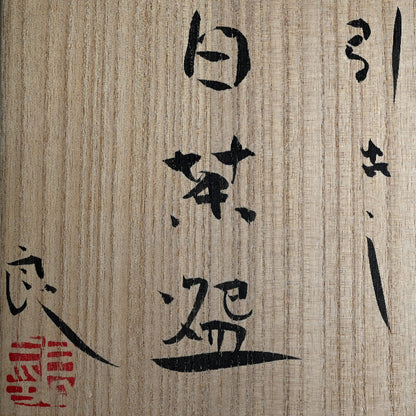 引出し
白茶盌
良